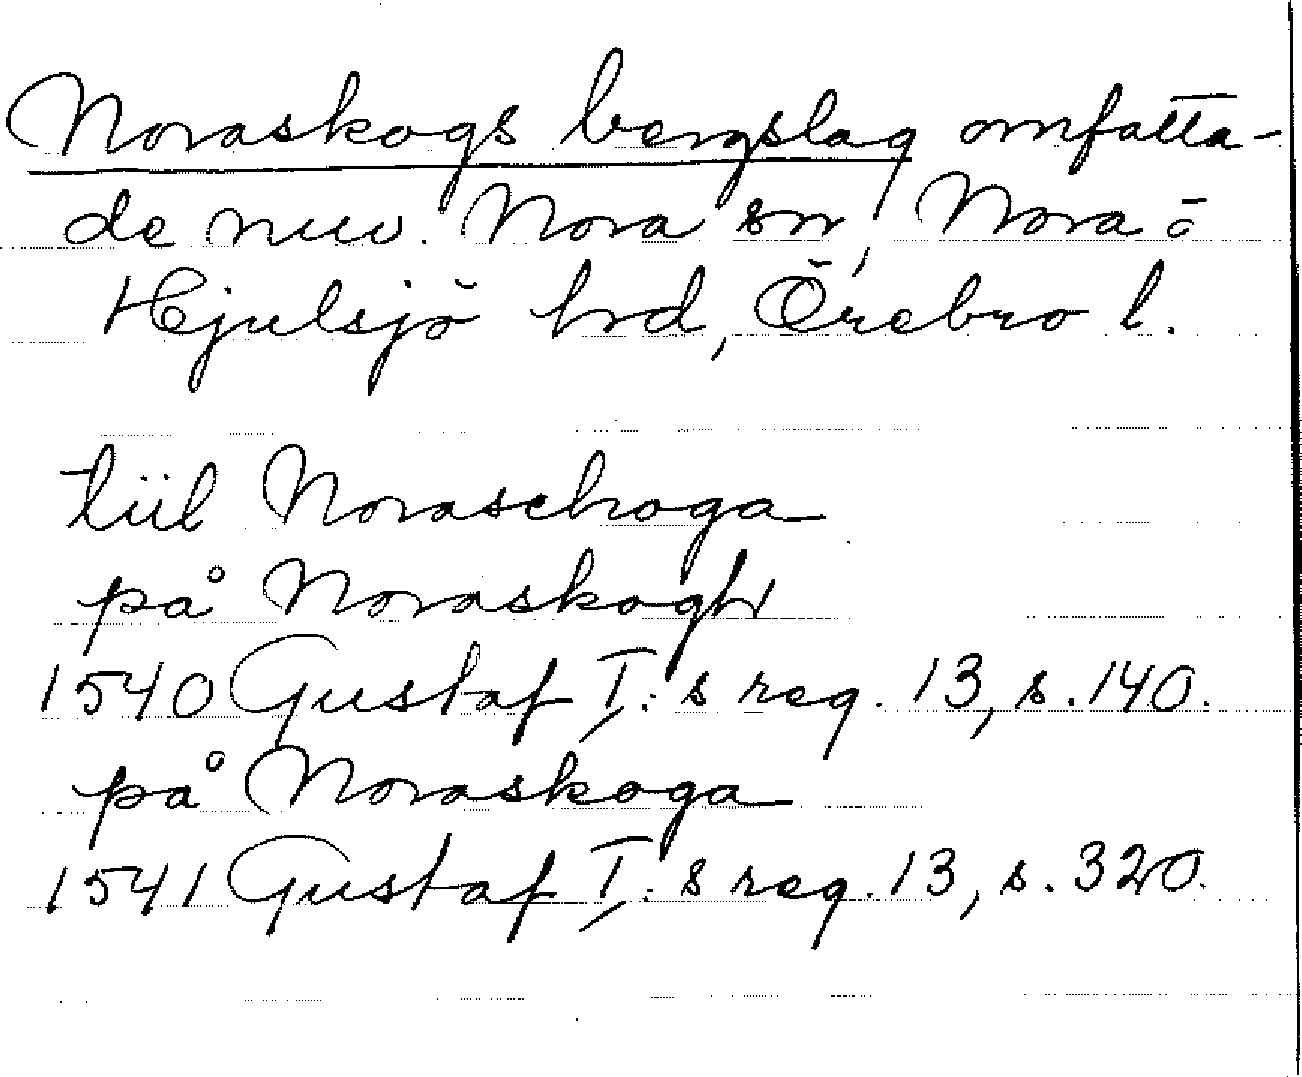 Noraskogs bergslag omfatta-
de nuv. Nora sn, Nora o
Hjulsjö hrd, Örebro l.
tiil Noraschoga
på Noraskogh
1540 Gustaf I:s reg. 13, s. 140.
på Noraskoga
1541 Gustaf I:s reg. 13, s. 320.